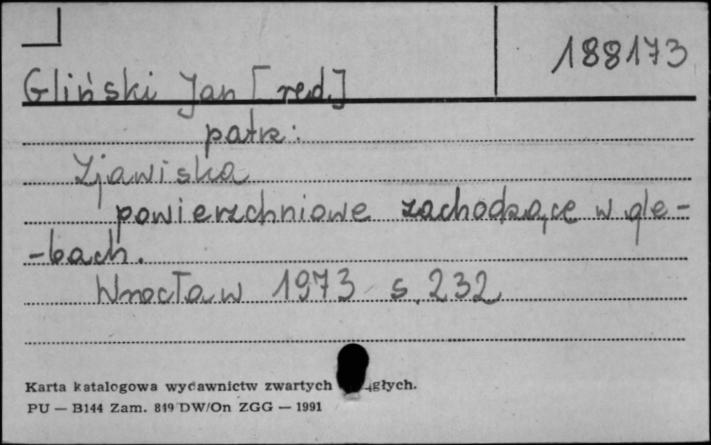 188173
Gliński Jan [red.]
patrz:
Zjawiska
powierzchniowe zachodzące w gle-
-bach.
Wrocław 1973 s. 232
Karta katalogowa wydawnictw zwartych głych.
PU — B144 Zam. 819 DW/On ZGG — 1991